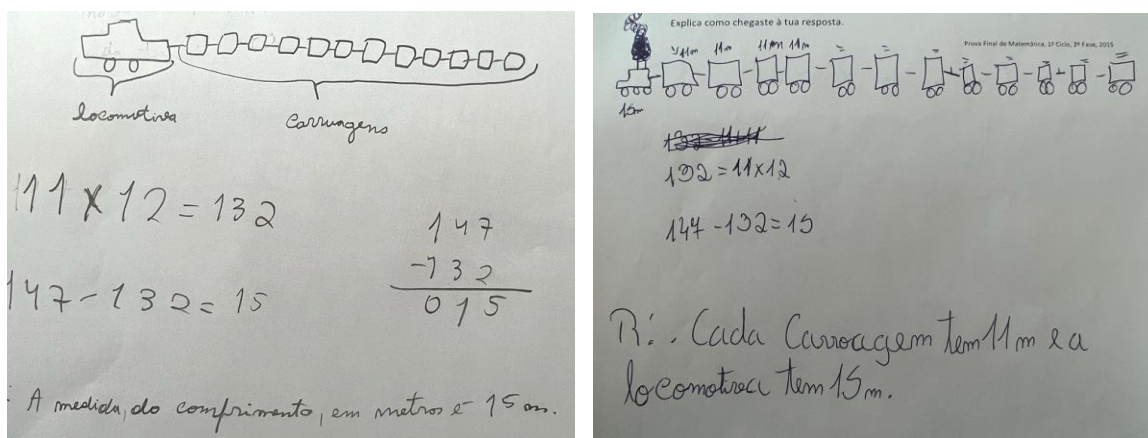 locomotiva
Carruagens
11 x 12 = 132
147 - 132 = 15
147
-132
015
A medida, do comprimento, em metros é 15 m.
Explica como chegaste à tua resposta.
Prova Final de Matemática, 1º Ciclo, 2ª Fase, 2015
11m 11m 11m 11m
15m
132 = 11x12
147 - 132 = 15
R: Cada Carroagem tem 11 m e a
locomotiva tem 15 m.